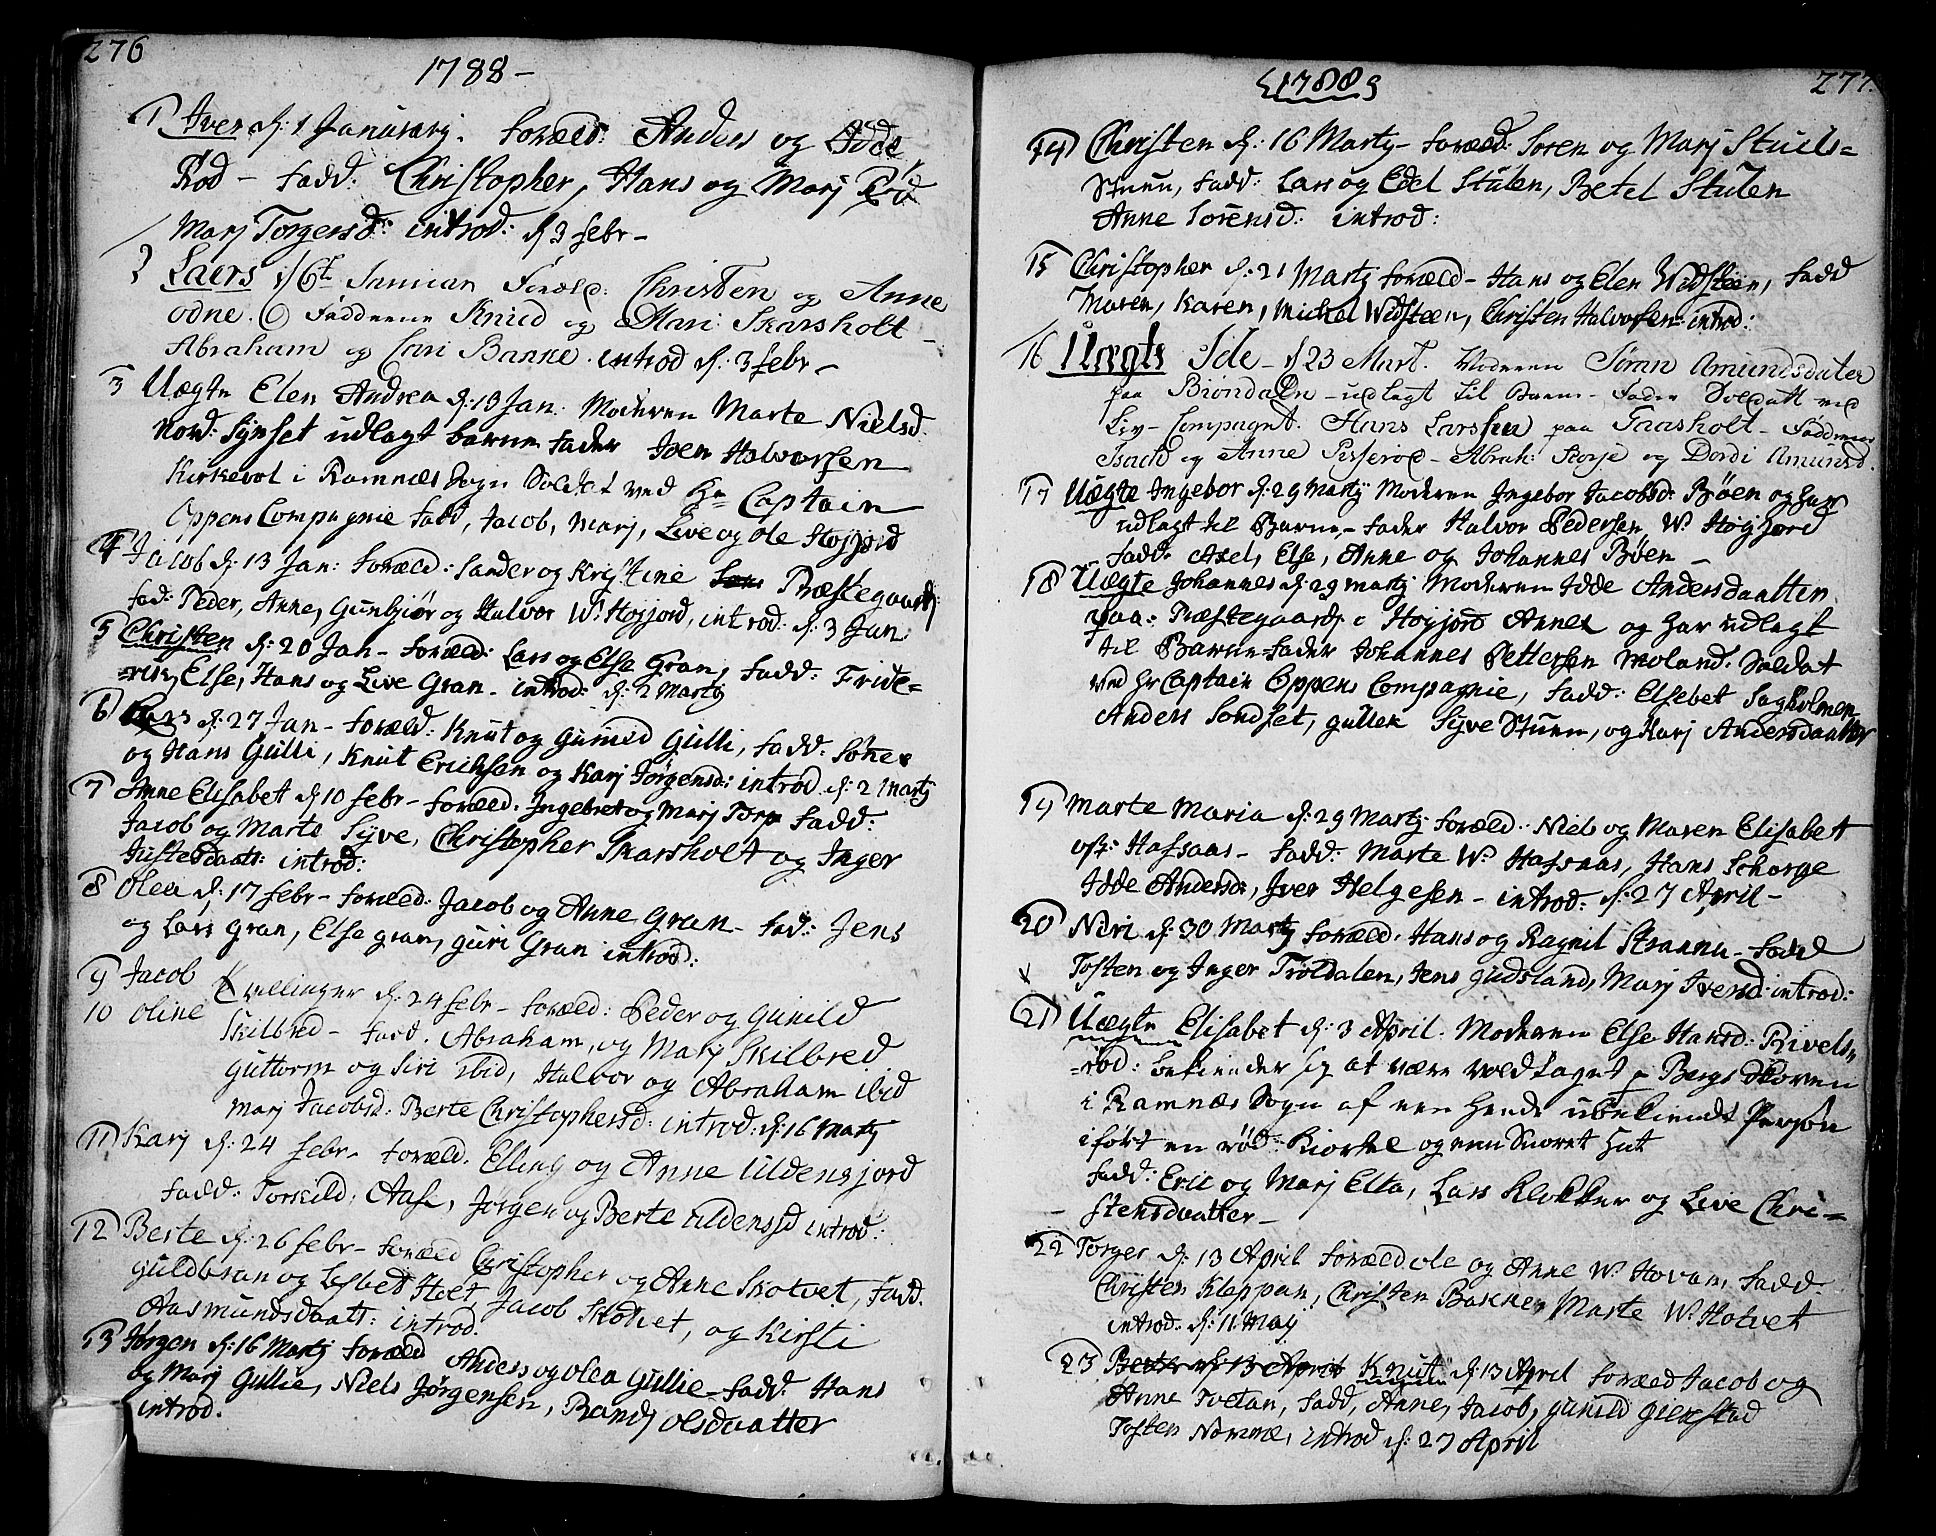 276
1788 -
1) Iver d: 1 Januarij. Foræld: Anders og Idde
Rød - Fadd: Christopher, Hans og Marj Rød
Marj Torgersd: introd: d. 3 febr -
2 Laers d 6t Januar Foræld: Christen og Anne
odne. Faddrene Knud og Mari Skarsholt -
Abraham og Cari Banne. introd d: 3 febr -
3 Uægte Elen Andrea d: 10 Jan: Moderen Marte Nielsd.
nord: Synset udlagt barne fader Iven Halvorsen
Kirkevol i Ramnæs Sogn Soldat ved Hr Captain
Oppens Compagnie Fadd, Jacob, Marj, Live og Ole Høyjord
4 Jacob d: 13 Jan: foræld: Sander og Kristine Præstegaard:
fad: Peder, Anne, Gunbjør og Halvor W: Høyjord, introd: d: 3 Jan
5 Christen d: 20 Jan - foræld: Lars og Else Gran, Fadd: Fride=
=rik, Else, Hans og Live Gran - introd: d: 2 Martj
6 Lars d: 27 Jan - foræld: Knut og Guneld Gulli, Fadd: Sone
og Hans Gulli, Knut Ericksen og Karj Jørgensd: introd d: 2 Martj
7 Anne Elisabet d 10 febr - foræld. Ingebret og Marj Torp Fadd:
Jacob og Marte Syve, Christopher Skarsholt og Inger
Justesdaatt: introd:
8 Olea d: 17 febr - foræld: Jacob og Anne Gran - Fad: Jens
og Lars Gran, Else gran, guri Gran introd:
9 Jacob
10 Oline Tvillinger d: 24 febr - foræld: Peder og Gunild
Skilbred - Fadd. Abraham, og Marj Skilbred
Guttorm og Siri ibid, Halvor og Abraham ibid
Marj Jacobsd: Berte Christophersd: introd: d: 16 Martj
11 Karj d: 24 febr - foræld. Elling og Anne Uldensjord
Fadd: Torkild, Aase, Jørgen og Berte Uldensjd introd:
12 Berte d: 26 febr - foræld Christopher og Anne Skotvet, Fadd.
Guldbran og Lisbet Hoet, Jacob Skotvet, og Kirsti
Aasmundsdaatt: introd.
13 Jørgen d: 16 Martj foræld Anders og Olea Gullie - Fadd: Hans
og Marj Gullie, Niels Jørgensen, Randj Olsdaatter
introd.
1788
277.
14 Christen d: 16 Martj - foræld: Soren og Marj Stuels=
Stuen, Fadd: Lars og Edel Stulen, Betel Stulen
Anne Sorensd: introd:
15 Christopher d: 21 Martj foræld - Hans og Elen Widsteen, Fadd
Maren, Karen, Mickel Widsteen, Christen Halvorsen introd:
16 Uægte Idle - d 23 Mart. Moderen Søran Amundsdater
paa Brøndalen - udlagt til Barne - Fader Soldatt ved
Liv - Compagnt. Hans Larsen paa Faasholt - Faddrene
Isach og Anne Pisserød - Abrah: Storje og Dordi Amunsd.
17 Uægte Ingebor d: 29 Martij Moderen Ingebor Jacobsd: Bøen og har
udlagt til Barne - Fader Halvor Pedersen W: Høyjord
Fadd: Axel, Else, Anne og Johannes Bøen -
18 Uægte Johannes d: 29 martj Moderen Idde Andersdaatter
paa: Præstegaards i Høyjord Annex og har udlagt
til Barne-fader Johannes Pettersen Moland. Soldat
ved hr Captain Oppens Compagnie, Fadd: Elsebet Sagholmen
Anders Sondset, gullek Syve Stuen, og Karj Andersdaatter
19 Marte Maria d: 29 Martj foræld: Niels og Maren Elisabet
øst: Hafsaas - Fadd: Marte W: Hafsaas, Hans Schorge
Idde Andersd:, Iver Helgesen - introd: d: 27 April -
20 Niri d: 30 Martj foræld: Hans og Ragnil Stranna - Fadd
Tosten og Inger Troldalen, Jens gudsland, Marj Iversd: introd:
21 Uægte Elisabet d: 3 April. Moderen Else Hansd: Rivels=
=rød: bekiender sig at være voldtaget p Bergs Skoven
i Ramnæs Sogn af een hende ubekiendt Person
iført en rød: Kiortel og een Snoret Hat
Fadd: Eric og Marj Elta, Lars Klokker og Live Chri=
- stensdaatter -
22 Torger d: 13 April foræld Ole og Anne W: Hovan, Fadd.
Christen Kleppan, Christen Bakken Marte W: Hotvet
introd. d: 11 May
23 Berte d: 13 April Knut d 13 April foræld Jacob og
Anne Tvetan, Fadd, Anne, Jacob, gunild gierstad
Tosten Nomme, introd d: 27 April